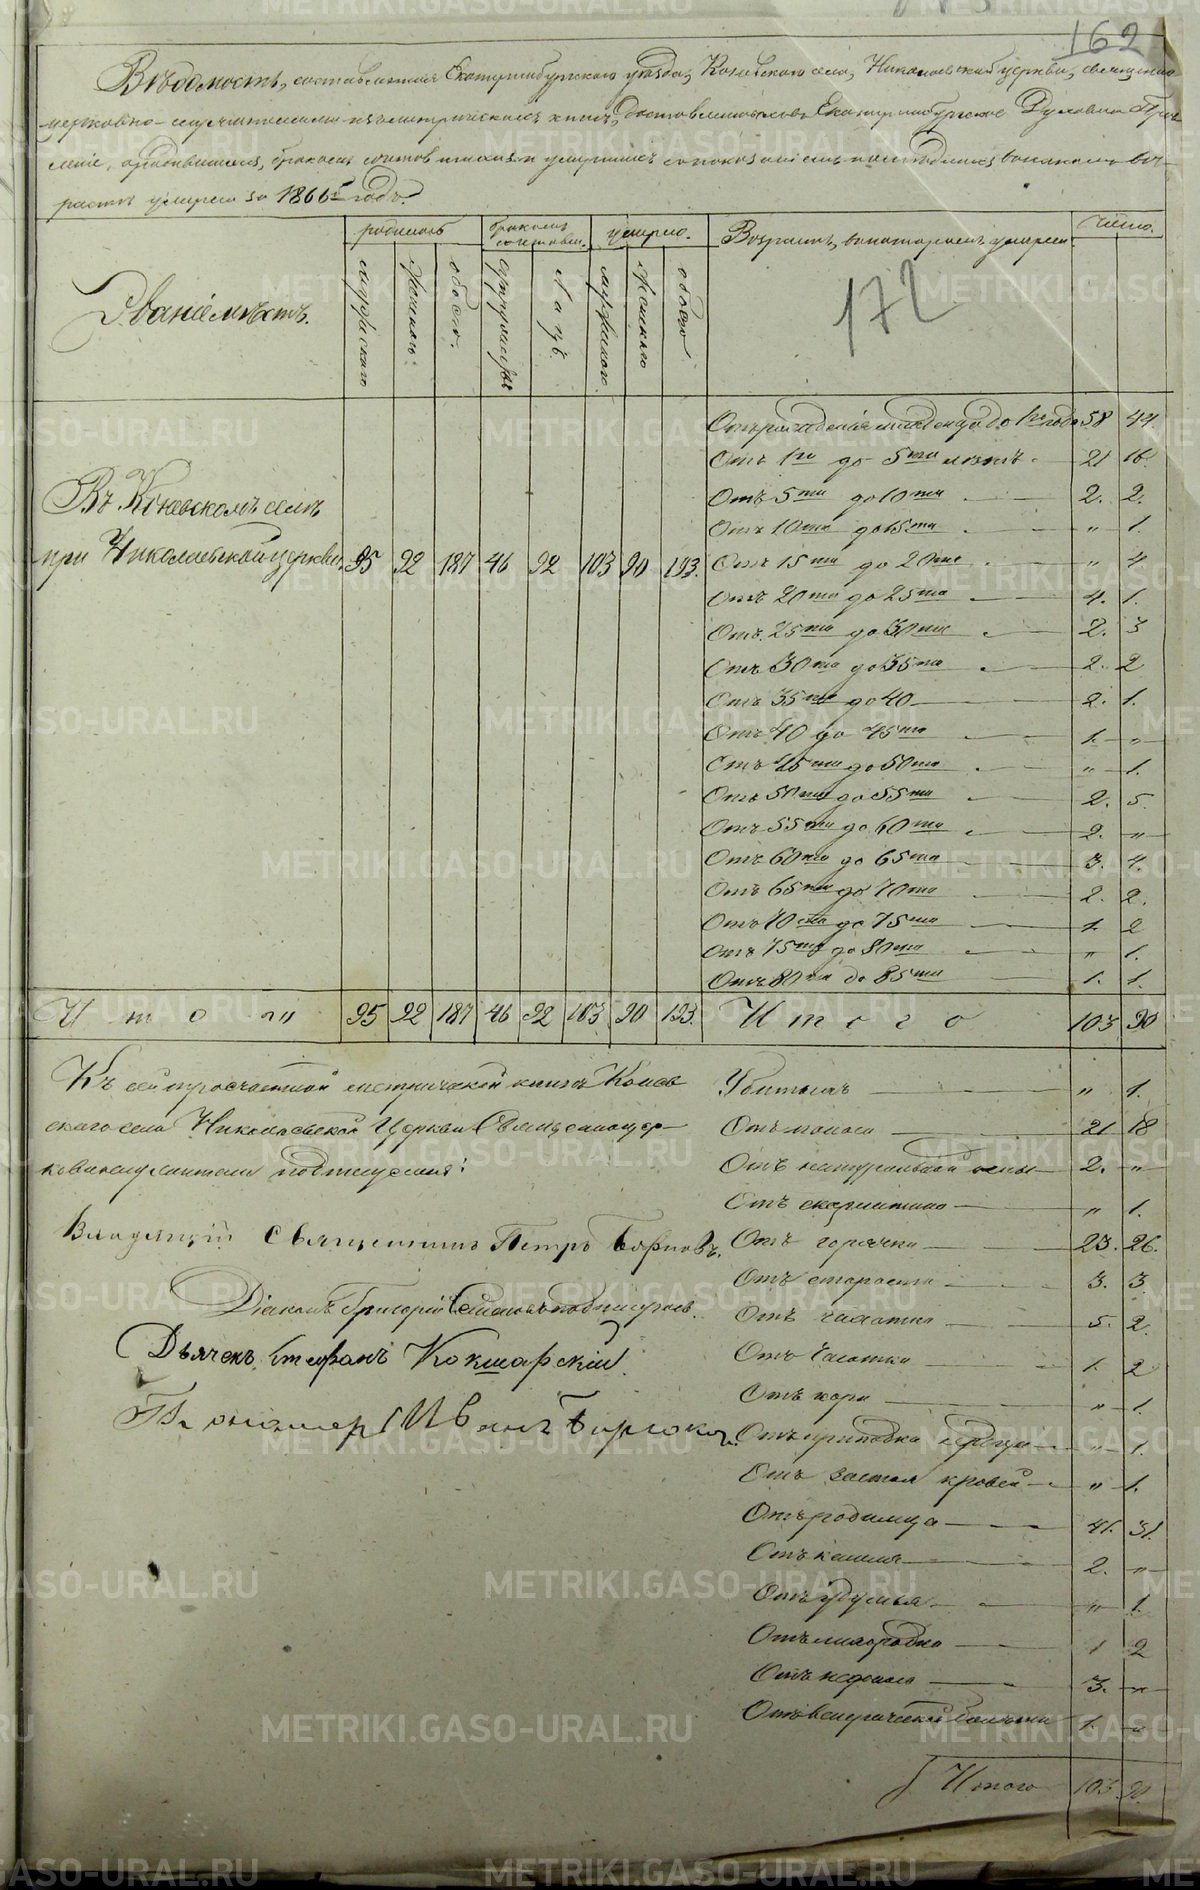 162
Вѣдомость, составленная Екатеринбургскаго уѣзда, Коневскаго села, Николаевской церкви, священно
церковно-служителями изъ метрическихъ книгъ, Екатеринбургское Духовное Прав
леніе, о родившихся, бракомъ сочетавшихся и умершихъ съ показаніемъ воз-
растъ умерли за 1866й годъ.
Званіе мѣстъ.
родилось
бракомъ сочетавш.
умерло.
Возрастъ, въ которомъ умерли.
Число.
мужскаго
женскаго
обоего.
супружествъ
лицъ.
мужскаго
женскаго
обоего
172
Въ Коневскомъ селѣ
при Николаевской церкви.
95 92 187 46 92 103 90 193.
Отъ рожденія младенца до 1го года 58 44.
Отъ 1го до 5ти лѣтъ 21 16.
Отъ 5ти до 10ти 2. 2.
Отъ 10ти до 15ти " 1.
Отъ 15ти до 20ти " 4
Отъ 20ти до 25ти 4. 1.
Отъ 25ти до 30ти 2. 3
Отъ 30ти до 35ти 2. 2
Отъ 35ти до 40 2. 1.
Отъ 40 до 45ти 1. "
Отъ 45ти до 50ти " 1.
Отъ 50ти до 55ти 2. 5.
Отъ 55ти до 60ти 2. "
Отъ 60ти до 65ти 3. 4.
Отъ 65ти до 70ти 2. 2.
Отъ 70ти до 75ти 1. 2
Отъ 75ти до 80ти " 1.
Отъ 80ти до 85ти 1. 1.
Итого 95 92 187 46 92 103 90 193. Итого 103 90
Къ сей тросчастной метрической книгѣ Конев
скаго села Николаевской Церкви Священноцер
ковнослужители подписуемся:
Владѣющій Священникъ Петръ
Діаконъ Григорій подписуюсь.
Дьячекъ Стефанъ Кокшарскій
Пономарь Иванъ
Убитыхъ " 1.
Отъ поноса 21 18
Отъ натуральной оспы 2. "
Отъ скарлатины " 1.
Отъ горячки 23. 26.
Отъ старости 3. 3.
Отъ чахотки 5. 2.
Отъ 1. 2
Отъ кори " 1.
Отъ припадка сердца " 1.
Отъ застоя кровей " 1.
Отъ родимца 41. 31.
Отъ кашля 2. "
Отъ удушья " 1.
Отъ лихорадки 1 2
Отъ 3. "
Отъ венерической болѣзни 1. "
Итого 103 90.
METRIKI.GASO-URAL.RU